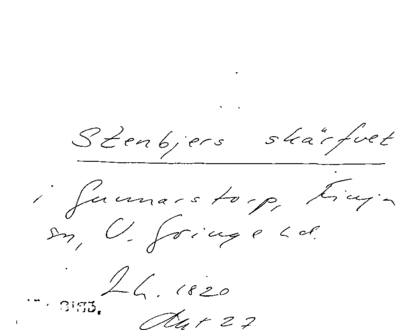 Stenbjers skärfvet
i Gunnarstorp, Finja
sn, V. Göinge hd.
Lh. 1820
Akt 27